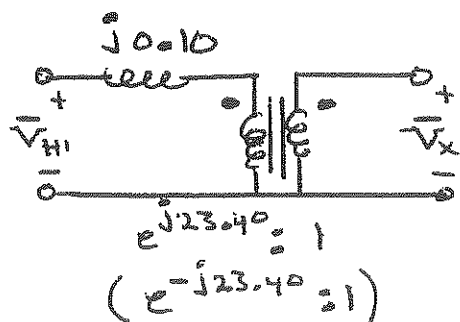 j0.10
+ +
V̄H1 V̄X
− −
e^j23.40 : 1
(e^-j23.40 : 1)